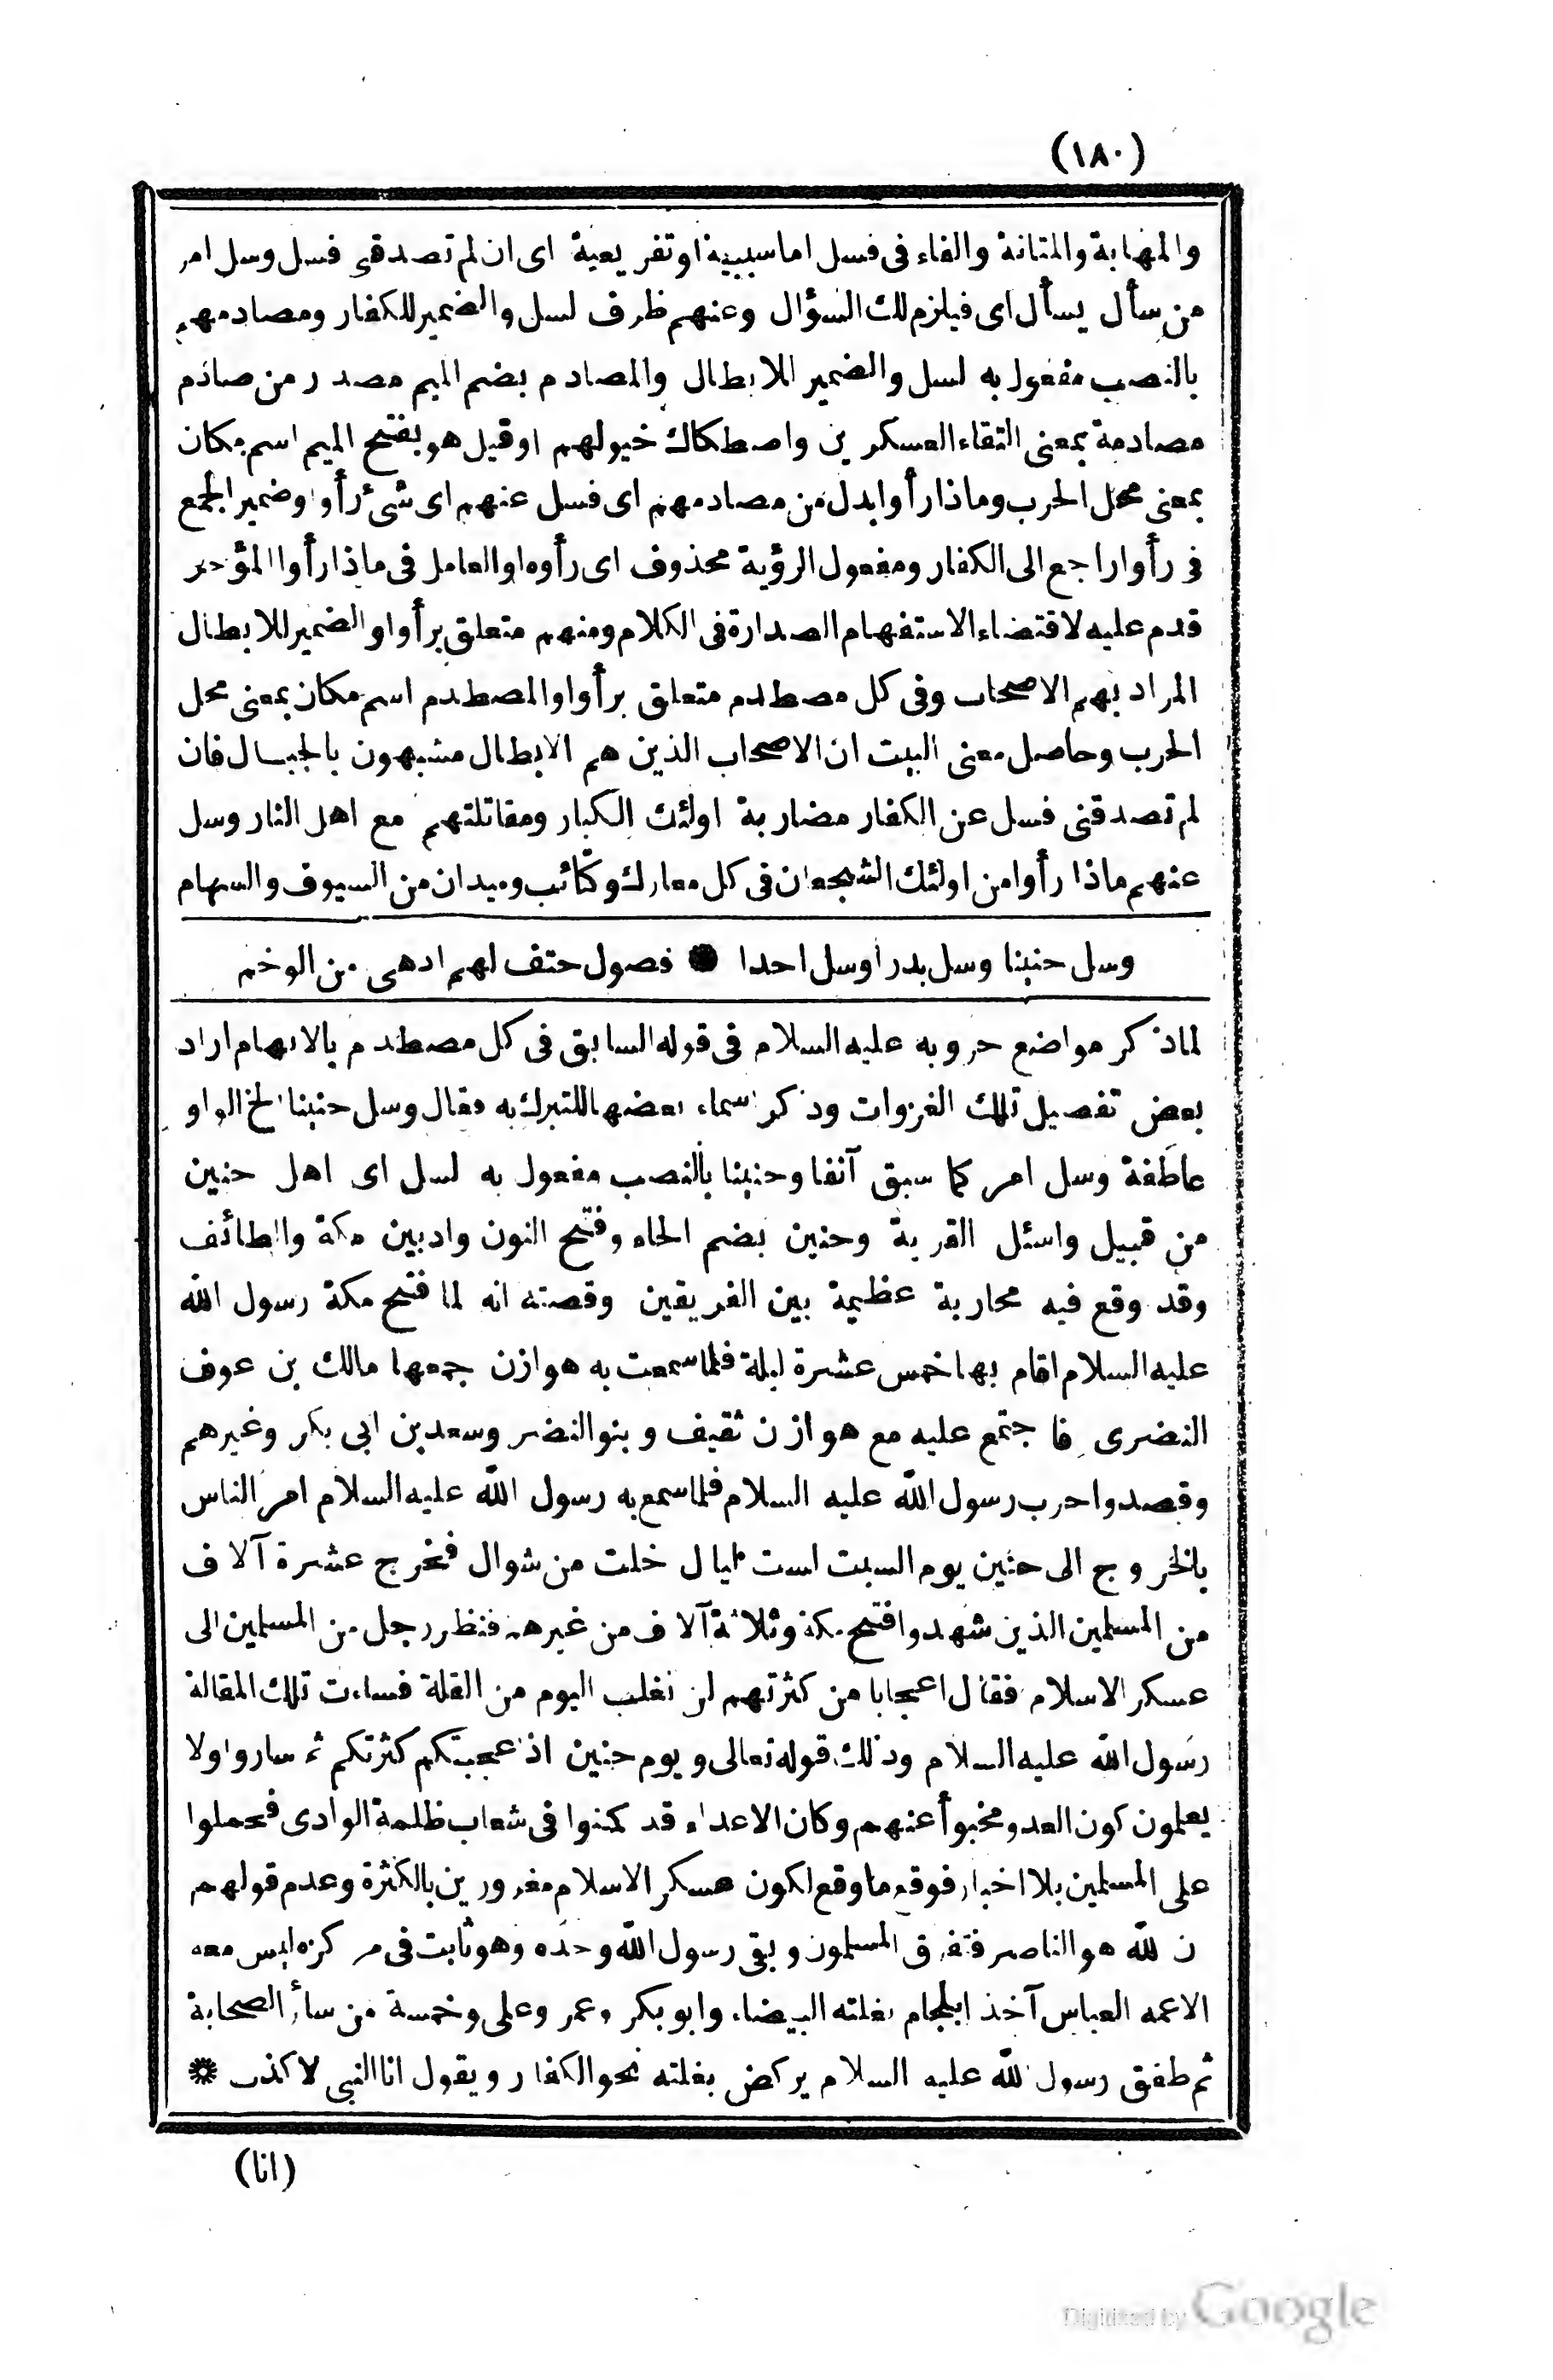 (١٨٠)
والمهابة والمتانة والفاء فى فسل اما سببية او تفريعية اى ان لم تصدقنى فسل وسل امر
من سأل يسأل اى فيلزم لك السؤال وعنهم ظرف لسل والضمير للكفار ومصادمهم
بالنصب مفعول به لسل والضمير للابطال والمصادم بضم الميم مصدر من صادم
مصادمة بمعنى التقاء العسكرين واصطكاك خيولهم او قيل هو بفتح الميم اسم مكان
بمعنى محل الحرب وماذا رأوا بدل من مصادمهم اى فسل عنهم اى شئ رأوا وضمير الجمع
فى رأوا راجع الى الكفار ومفعول الرؤية محذوف اى رأوه او العامل فى ماذا رأوا المؤخر
قدم عليه لاقتضاء الاستفهام الصدارة فى الكلام ومنهم متعلق برأوا والضمير للابطال
المراد بهم الاصحاب وفى كل مصطدم متعلق برأوا والمصطدم اسم مكان بمعنى محل
الحرب وحاصل معنى البيت ان الاصحاب الذين هم الابطال مشبهون بالجبال فان
لم تصدقنى فسل عن الكفار مضاربة اولئك الكبار ومقاتلتهم مع اهل النار وسل
عنهم ماذا رأوا من اولئك الشجعان فى كل معارك وكتائب وميدان من السيوف والسهام
وسل حنينا وسل بدرا وسل احدا ✹ فصول حتف لهم ادهى من الوخم
لما ذكر مواضع حروبه عليه السلام فى قوله السابق فى كل مصطدم بالابهام اراد
بعض تفصيل تلك الغزوات وذكر اسماء بعضها للتبرك به فقال وسل حنينا الخ الواو
عاطفة وسل امر كما سبق آنفا وحنينا بالنصب مفعول به لسل اى اهل حنين
من قبيل واسئل القرية وحنين بضم الحاء وفتح النون واد بين مكة والطائف
وقد وقع فيه محاربة عظيمة بين الفريقين وقصته انه لما فتح مكة رسول الله
عليه السلام اقام بها خمس عشرة ليلة فلما سمعت به هوازن جمعها مالك بن عوف
النضرى فاجتمع عليه مع هوازن ثقيف وبنو النضر وسعد بن ابى بكر وغيرهم
وقصدوا حرب رسول الله عليه السلام فلما سمع به رسول الله عليه السلام امر الناس
بالخروج الى حنين يوم السبت لست ليال خلت من شوال فخرج عشرة آلاف
من المسلمين الذين شهدوا فتح مكة وثلاثة آلاف من غيرهم فنظر رجل من المسلمين الى
عسكر الاسلام فقال اعجابا من كثرتهم لن نغلب اليوم من القلة فساءت تلك المقالة
رسول الله عليه السلام وذلك قوله تعالى ويوم حنين اذ اعجبتكم كثرتكم ثم ساروا ولا
يعلمون كون العدو مخبوأ عنهم وكان الاعداء قد كمنوا فى شعاب ظلمة الوادى فحملوا
على المسلمين بلا اخبار فوقع ما وقع لكون عسكر الاسلام مغرورين بالكثرة وعدم قولهم
ن لله هو الناصر فتفرق المسلمون وبقى رسول الله وحده وهو ثابت فى مركزه ليس معه
الاعمه العباس آخذ ابلجام بغلته البيضاء وابو بكر وعمر وعلى وخمسة من سائر الصحابة
ثم طفق رسول لله عليه السلام يركض بغلته نحو الكفار ويقول انا النبى لا كذب ❊
(انا)
Digitized by Google